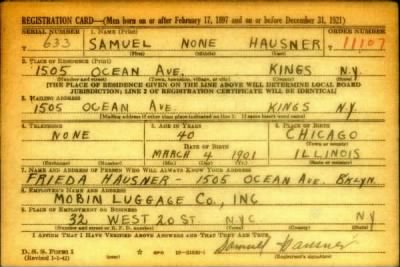 REGISTRATION CARD—(Men born on or after February 17, 1897 and on or before December 31, 1921)
SERIAL NUMBER 1. NAME (Print) ORDER NUMBER
T 633 SAMUEL NONE HAUSNER 11107
(First) (Middle) (Last)
2. PLACE OF RESIDENCE (Print)
1505 OCEAN AVE. KINGS N.Y.
(Number and street) (Town, township, village, or city) (County) (State)
[THE PLACE OF RESIDENCE GIVEN ON THE LINE ABOVE WILL DETERMINE LOCAL BOARD
JURISDICTION; LINE 2 OF REGISTRATION CERTIFICATE WILL BE IDENTICAL]
3. MAILING ADDRESS
1505 OCEAN AVE. KINGS N.Y.
[Mailing address if other than place indicated on line 2. If same insert word same]
4. TELEPHONE 5. AGE IN YEARS 6. PLACE OF BIRTH
NONE 40 CHICAGO
DATE OF BIRTH (Town or county)
MARCH 4 1901 ILLINOIS
(Exchange) (Number) (Mo.) (Day) (Yr.) (State or country)
7. NAME AND ADDRESS OF PERSON WHO WILL ALWAYS KNOW YOUR ADDRESS
FRIEDA HAUSNER - 1505 OCEAN AVE. BKLYN.
8. EMPLOYER'S NAME AND ADDRESS
MOBIN LUGGAGE CO., INC
9. PLACE OF EMPLOYMENT OR BUSINESS
32 WEST 20 ST. NYC NY
(Number and street or R. F. D. number) (Town) (County) (State)
I AFFIRM THAT I HAVE VERIFIED ABOVE ANSWERS AND THAT THEY ARE TRUE.
D. S. S. Form 1
(Revised 1-1-42) (over) Samuel Hausner
(Registrant's signature)